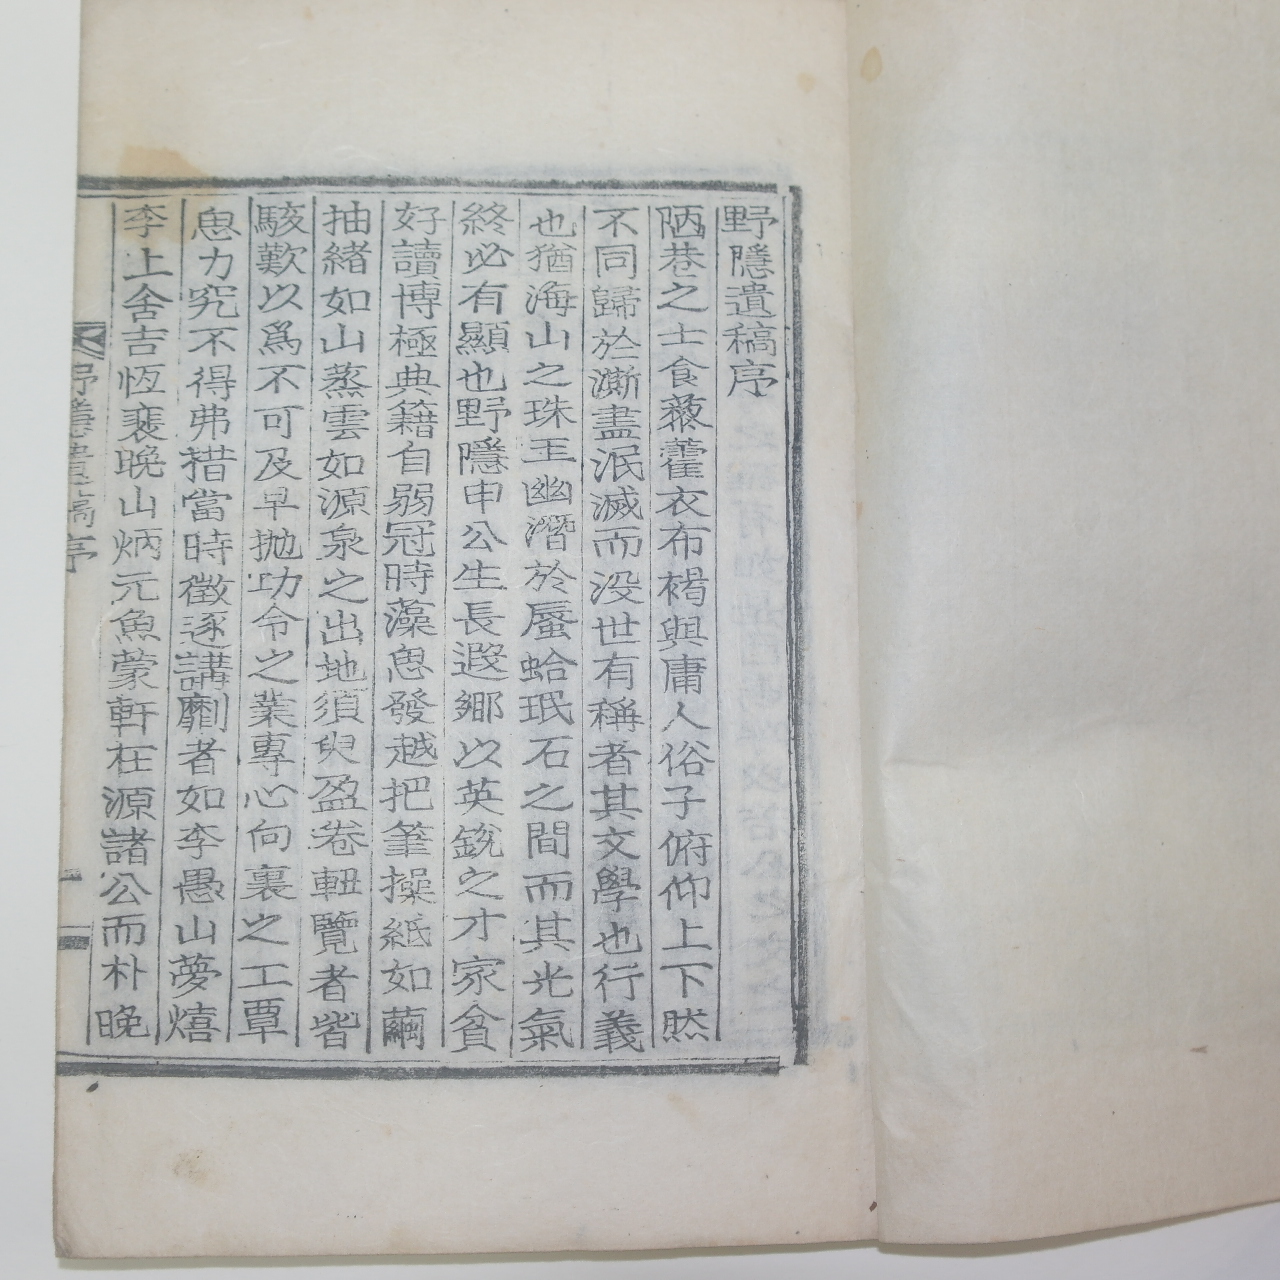 野隱遺稿序
陋巷之士食藜藿衣布褐與庸人俗子俯仰上下然
不同歸於澌盡泯滅而没世有稱者其文學也行義
也猶海山之珠玉幽潛於蜃蛤珉石之間而其光氣
終必有顯也野隱申公生長遐鄉以英銳之才家貧
好讀博極典籍自弱冠時藻思發越把筆操紙如繭
抽緖如山蒸雲如源泉之出地須臾盈卷軸覽者皆
駭歎以爲不可及早抛功令之業專心向裏之工覃
思力究不得弗措當時徵逐講劘者如李愚山夢熺
李上舍吉恆裵晩山炳元魚蒙軒在源諸公而朴晚
野隱遺稿序
一